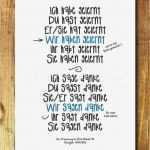 Ich habe gefeiert
Du hast gefeiert
Er/Sie hat gefeiert
Wir haben gefeiert
Ihr habt gefeiert
Sie haben gefeiert
Ich sage danke
Du sagst danke
Sie/Er sagt danke
Wir sagen danke
Ihr sagt danke
Sie sagen danke